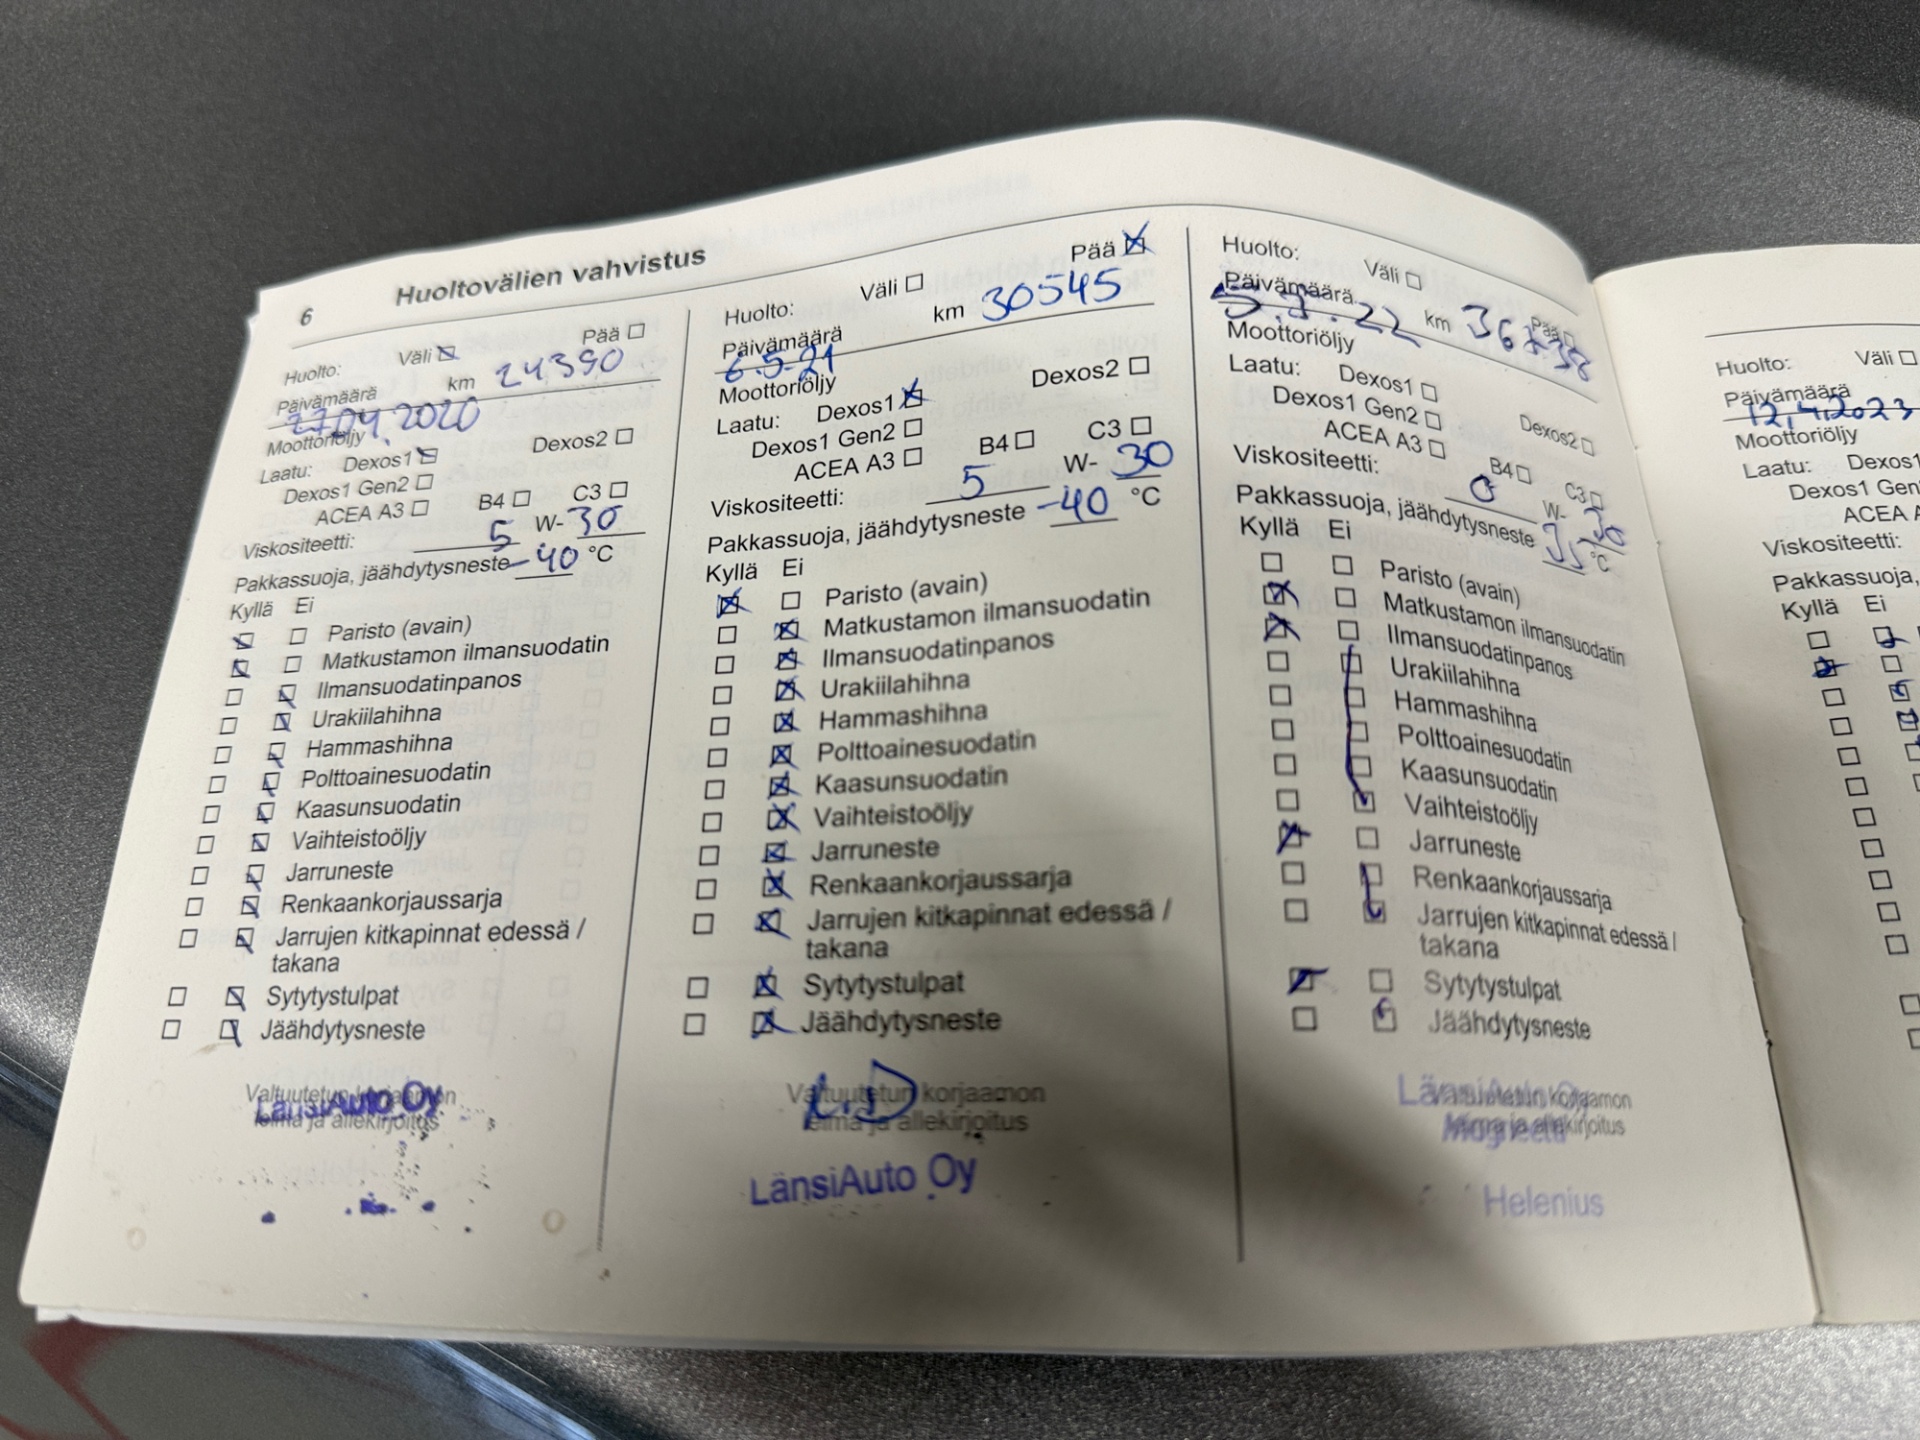 6 Huoltovälien vahvistus
Huolto: Väli ☒ Pää ☐
Päivämäärä km 24390
27.04.2020
Moottoriöljy
Laatu: Dexos1 ☒ Dexos2 ☐
Dexos1 Gen2 ☐
ACEA A3 ☐ B4 ☐ C3 ☐
Viskositeetti: 5 W- 30
Pakkassuoja, jäähdytysneste -40 °C
Kyllä Ei
☒ ☐ Paristo (avain)
☒ ☐ Matkustamon ilmansuodatin
☐ ☒ Ilmansuodatinpanos
☐ ☒ Urakiilahihna
☐ ☒ Hammashihna
☐ ☒ Polttoainesuodatin
☐ ☒ Kaasunsuodatin
☐ ☒ Vaihteistoöljy
☐ ☒ Jarruneste
☐ ☒ Renkaankorjaussarja
☐ ☒ Jarrujen kitkapinnat edessä /
takana
☐ ☒ Sytytystulpat
☐ ☒ Jäähdytysneste
Valtuutetun korjaamon
leima ja allekirjoitus
LänsiAuto Oy
Huolto: Väli ☐ Pää ☒
Päivämäärä km 30545
6.5.21
Moottoriöljy
Laatu: Dexos1 ☒ Dexos2 ☐
Dexos1 Gen2 ☐
ACEA A3 ☐ B4 ☐ C3 ☐
Viskositeetti: 5 W- 30
Pakkassuoja, jäähdytysneste -40 °C
Kyllä Ei
☒ ☐ Paristo (avain)
☐ ☒ Matkustamon ilmansuodatin
☐ ☒ Ilmansuodatinpanos
☐ ☒ Urakiilahihna
☐ ☒ Hammashihna
☐ ☒ Polttoainesuodatin
☐ ☒ Kaasunsuodatin
☐ ☒ Vaihteistoöljy
☐ ☒ Jarruneste
☐ ☒ Renkaankorjaussarja
☐ ☒ Jarrujen kitkapinnat edessä /
takana
☐ ☒ Sytytystulpat
☐ ☒ Jäähdytysneste
Valtuutetun korjaamon
leima ja allekirjoitus
L.D
LänsiAuto Oy
Huolto: Väli ☐ Pää ☐
Päivämäärä km
Moottoriöljy
Laatu: Dexos1 ☐ Dexos2 ☐
Dexos1 Gen2 ☐
ACEA A3 ☐ B4 ☐ C3 ☐
Viskositeetti: 0 W- 30
Pakkassuoja, jäähdytysneste 35 °C
Kyllä Ei
☐ ☐ Paristo (avain)
☒ ☐ Matkustamon ilmansuodatin
☒ ☐ Ilmansuodatinpanos
☐ ☒ Urakiilahihna
☐ ☒ Hammashihna
☐ ☒ Polttoainesuodatin
☐ ☒ Kaasunsuodatin
☐ ☒ Vaihteistoöljy
☒ ☐ Jarruneste
☐ ☒ Renkaankorjaussarja
☐ ☒ Jarrujen kitkapinnat edessä /
takana
☒ ☐ Sytytystulpat
☐ ☒ Jäähdytysneste
Valtuutetun korjaamon
leima ja allekirjoitus
LänsiAuto Oy
Magneetti
Helenius
Huolto: Väli ☐
Päivämäärä
12.4.2023
Moottoriöljy
Laatu: Dexos1
Dexos1 Gen
ACEA A
Viskositeetti:
Pakkassuoja,
Kyllä Ei